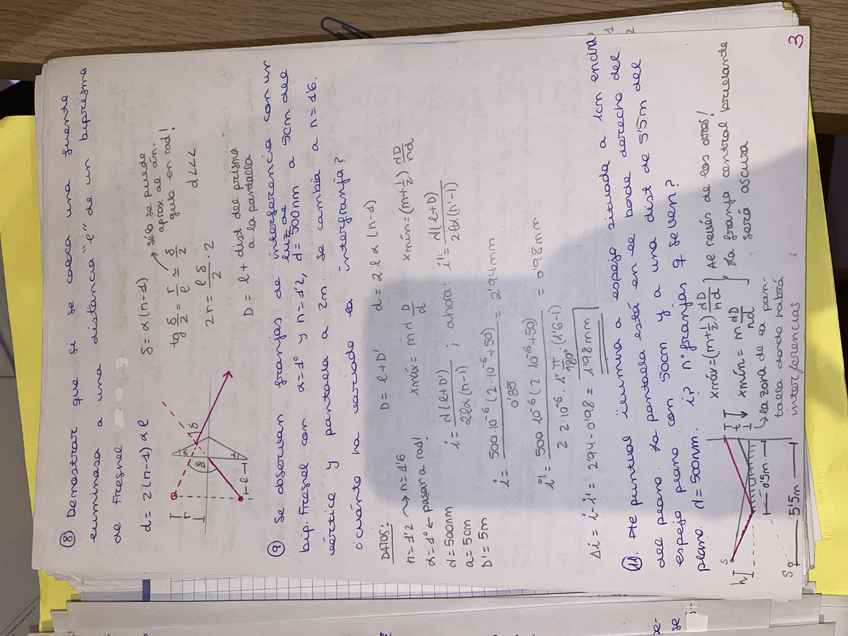 ⑧ Demostrar que si se coloca una fuente
luminosa a una distancia "l" de un biprisma
de Fresnel
d = 2(n-1)αl
δ = α(n-1)
tg δ/2 = r/l ≃ δ/2
→ sólo se puede
aprox de án.
gulo en rad!
2r = lδ/2 · 2
d<<<
D = l + dist del prisma
a la pantalla
⑨ Se observan franjas de interferencia con un
bip. Fresnel con α=1° y n=1'2, luz de λ=500nm a 5cm del
vértice y pantalla a 2m. Se cambia a n=1'6.
¿cuánto ha variado la interfranja?
DATOS:
n=1'2 → n=1'6
α=1° ← pasar a rad!
λ=500nm
a=5cm
D'=5m
D = l+D'
d = 2lα(n-1)
xmáx = mλ D/d
xmín = (m+½) λD/nd
i = λ(l+D')/2lα(n-1) ; ahora: i' = λ(l+D)/2lα(n'-1)
i = 500·10⁻⁶(2·10⁻⁶+50)/0'85 = 2'94mm
i' = 500·10⁻⁶(2·10⁻⁶+50)/2·2·10⁻⁶·1°·π/180°·(1'6-1) = 0'98mm
Δi = i-i' = 2'94-0'98 = 1'98mm
⑪. Fte puntual ilumina a espejo situada a 1cm encima
del plano. La pantalla está en el borde derecho del
espejo plano con 50cm y a una dist de 5'5m del
plano. λ=500nm. ¿? nº franjas q se ven?
xmáx = (m+½) λD/nd
xmín = m λD/nd
Al revés de los otros!
La franja central brillante
será oscura
→ la zona de la pan-
talla donde habrá
interferencias
S
h
S'
0'5m
5'5m
3